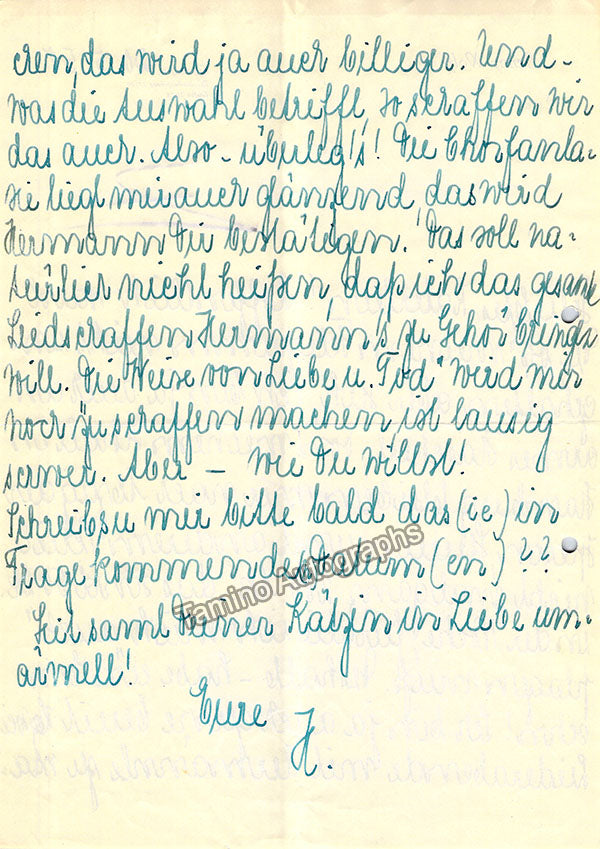 chen, das wird ja auch billiger. Und -
was die Auswahl betrifft, so schaffen wir
das auch. Also - überleg's! Die Chorfanta-
sie liegt mir auch glänzend, das wird
Hermann Dir bestätigen. Das soll na-
türlich nicht heißen, daß ich das gesamte
Liedschaffen Hermann's zu Gehör bringen
will. Die Weise von Liebe u. Tod" wird mir
noch zu schaffen machen ist lausig
schwer. Aber - wie Du willst!
Schreibst Du mir bitte bald das (ie) in
Frage kommende Datum (en)??
Sei samt Deiner Kätzin in Liebe um-
armt!
Eure
H.
Tamino Autographs